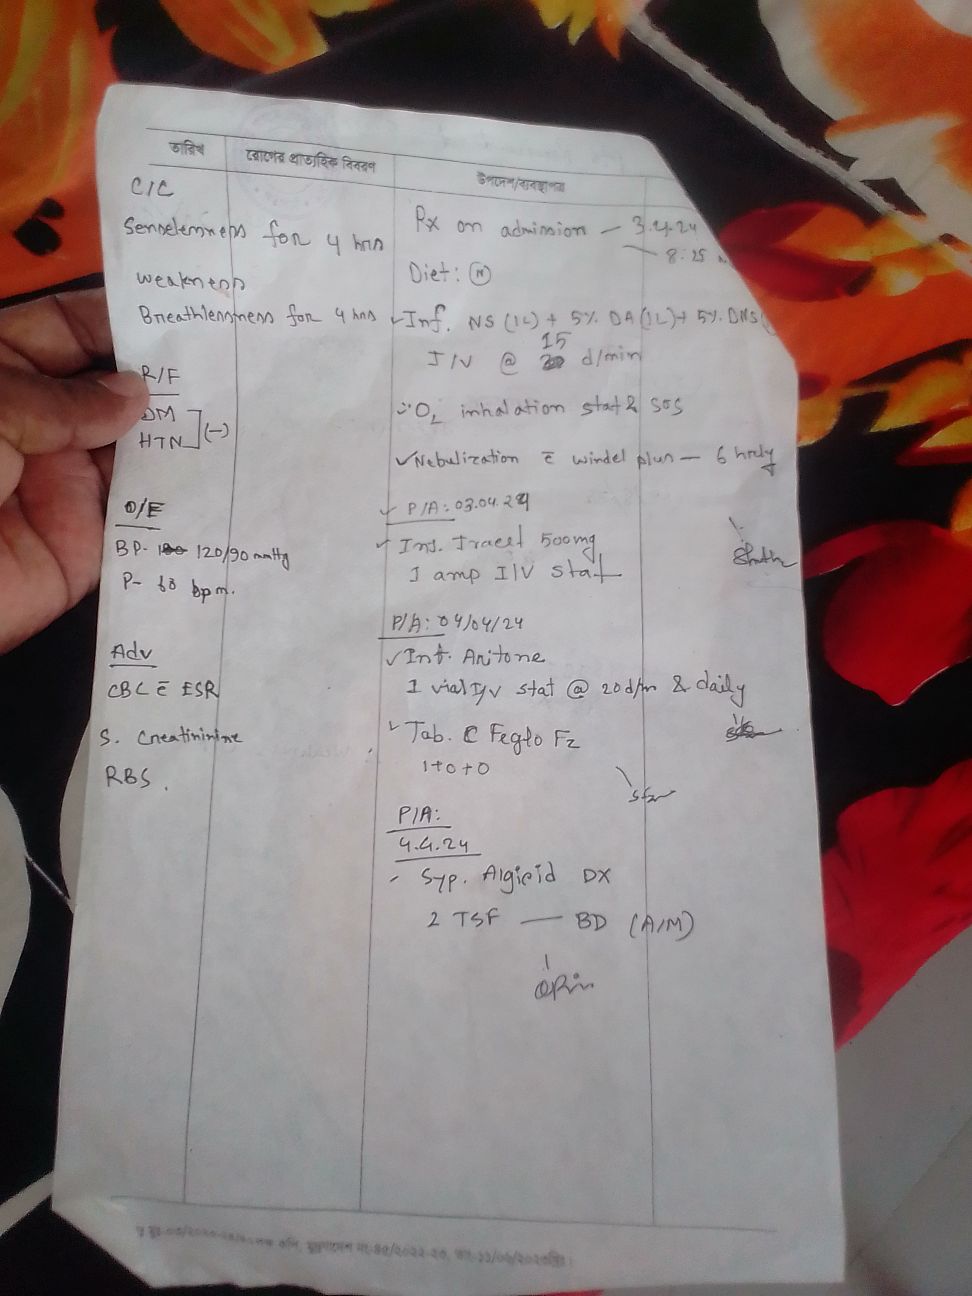 তারিখ
রোগের প্রাত্যহিক বিবরণ
উপদেশ/ব্যবস্থাপত্র
C/C
Senselessness for 4 hrs
Weakness
Breathlessness for 4 hrs
R/F
DM
HTN (-)
O/E
BP- 120/90 mmHg
P- 68 bpm.
Adv
CBC c̄ ESR
S. Creatininine
RBS.
Rx on admission - 3.4.24
8:25
Diet: (N)
Inf. NS (1L) + 5% DA (1L) + 5% DNS
I/V @ 15 d/min
O2 inhalation stat & SOS
Nebulization c̄ windel plus - 6 hrly
P/A: 03.04.24
Inj. Iracet 500mg
1 amp I/V stat
P/A: 04/04/24
Inf. Aritone
1 vial I/V stat @ 20d/m & daily
Tab. Feglo Fz
1+0+0
P/A:
4.4.24
Syp. Algicid DX
2 TSF — BD (A/M)